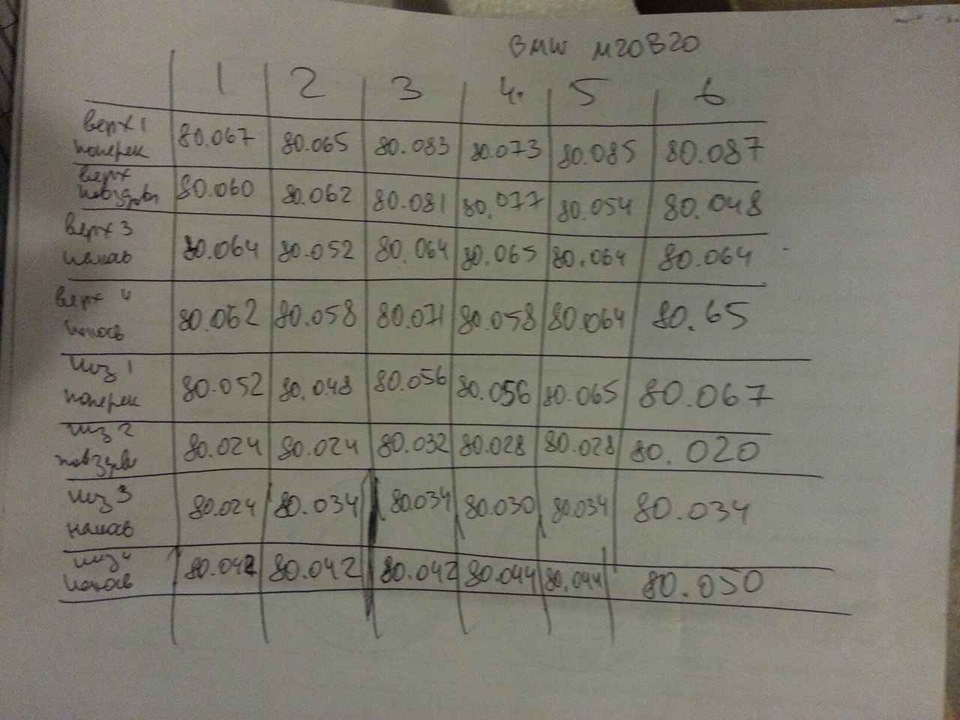 BMW M20B20
1 2 3 4. 5 6
верх 1 поперек 80.067 80.065 80.083 80.073 80.085 80.087
верх 80.060 80.062 80.081 80.077 80.054 80.048
верх 3 80.064 80.052 80.064 80.065 80.064 80.064
верх 4 80.062 80.058 80.071 80.058 80.064 80.65
низ 1 поперек 80.052 80.048 80.056 80.056 80.065 80.067
низ 2 80.024 80.024 80.032 80.028 80.028 80.020
низ 3 80.024 80.034 80.034 80.030 80.034 80.034
низ 4 80.042 80.042 80.042 80.044 80.044 80.050